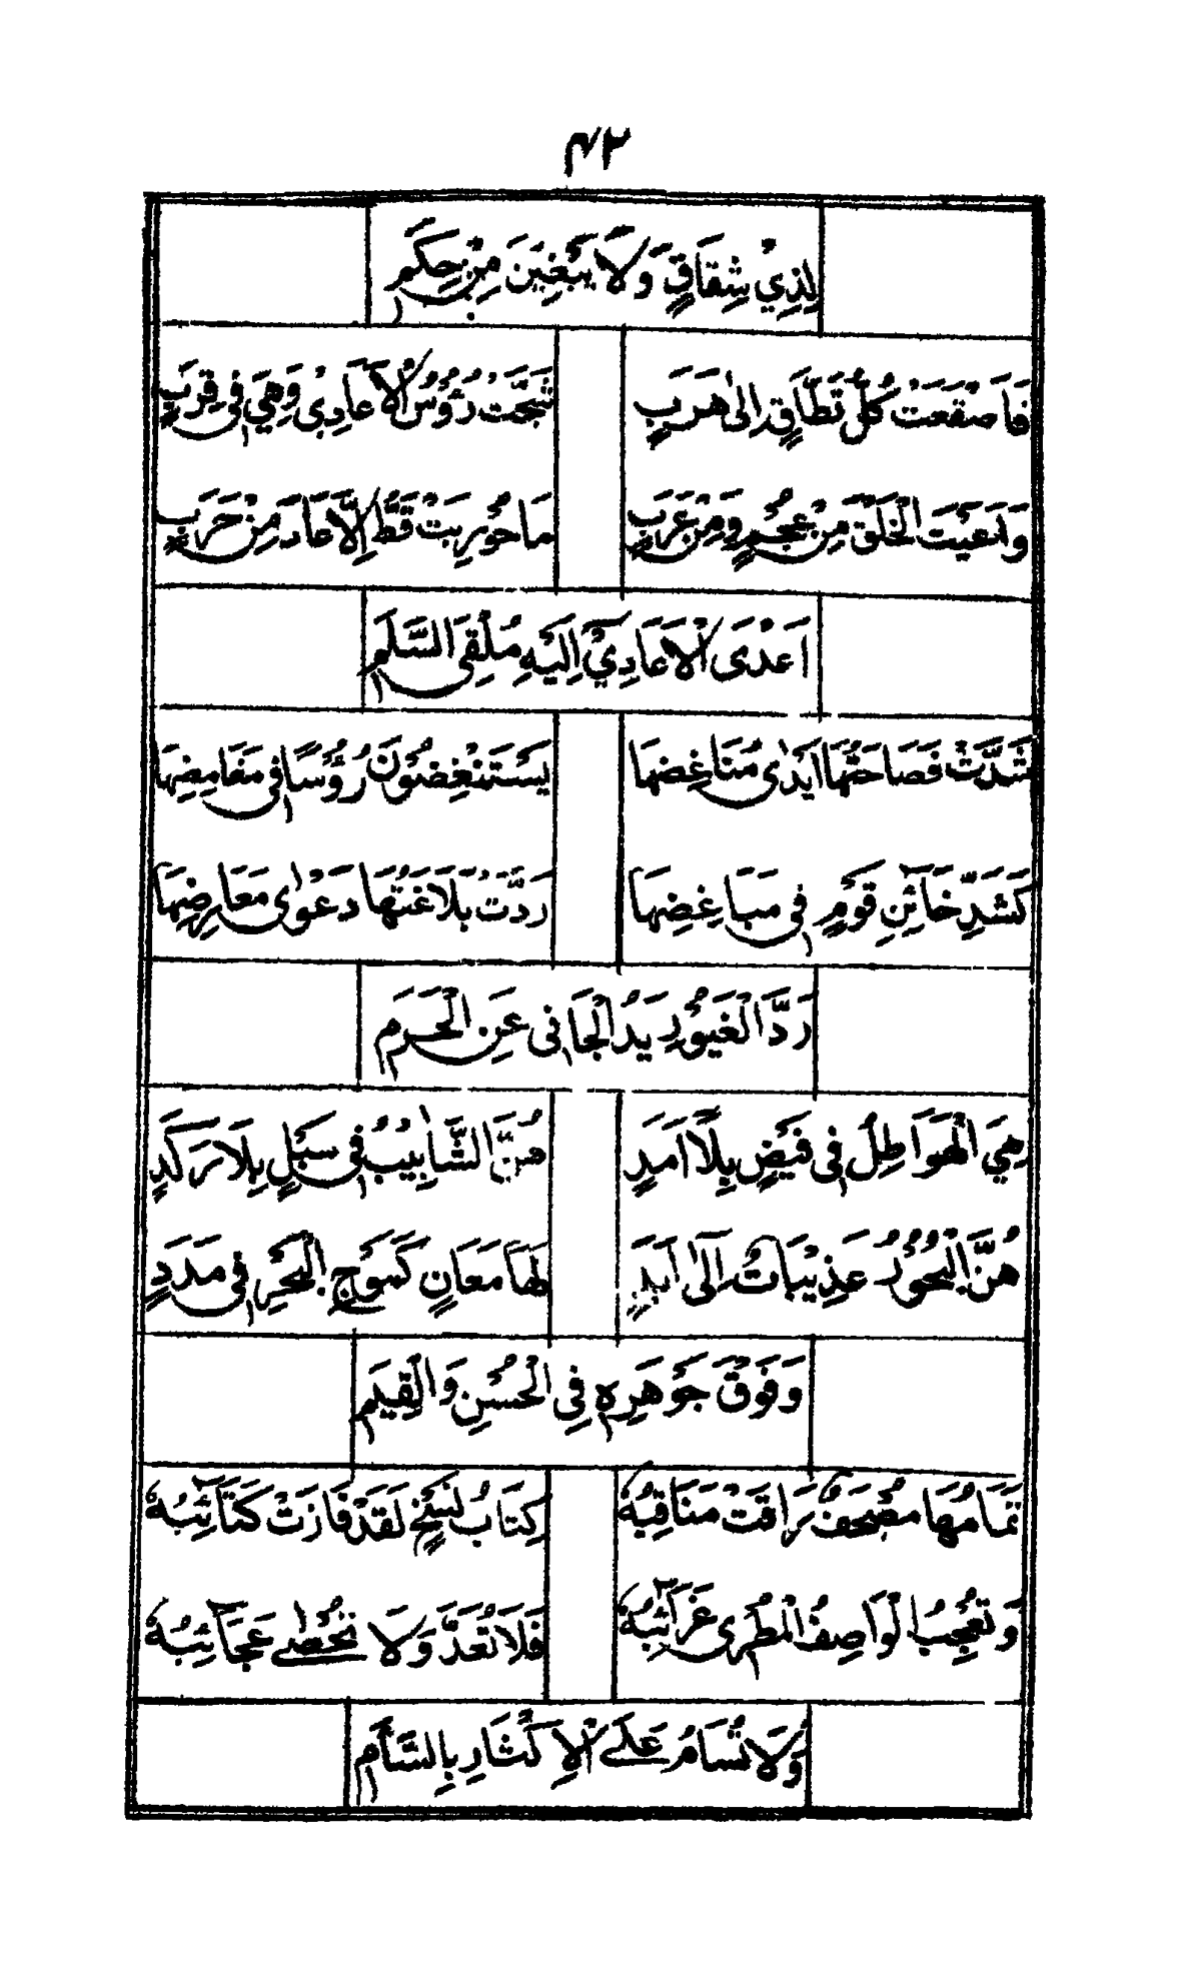 ۴۲
لِذِيْ شِقَاقٍ وَلَا يَبْغِيْنَ مِنْ حِكَمٖ
فَاَصْقَعَتْ كُلَّ نَطَّاقٍ اِلٰى هَرَبٍ شَجَّتْ رُؤُسُ الْاَعَادِیْ وَهِيَ فِیْ قِرَبٍ
وَاَدْعَيَتِ الْخَلْقَ مِنْ عُجْمٍ وَمِنْ عَرَبٍ مَا حُوْرِبَتْ قَطُّ اِلَّا عَادَ مِنْ حَرَبٍ
اَعْدَى الْاَعَادِيْ اِلَيْهِ مُلْقِیَ السَّلَمٖ
شَدَّتْ فَصَاحَتُهَا اَيْدٰى مُنَاغِضِهَا يَسْتَنْغِضُوْنَ رُؤُسًا فِیْ مَغَامِضِهَا
كَشَدِّ خَآئِنِ قَوْمٍ فِیْ مَبَاغِضِهَا رَدَّتْ بَلَاغَتُهَا دَعْوٰى مَعَارِضِهَا
رَدَّ الْغَيُوْرِ يَدُ الْجَانِیْ عَنِ الْحَرَمٖ
هِيَ الْهَوَاطِلُ فِیْ فَيْضٍ بِلَا اَمَدٍ هُنَّ الشَّاٰبِيْبُ فِیْ سَبَلٍ بِلَا رَكَدٍ
هُنَّ الْبُحُوْرُ عَذِيْبَاتٌ اِلٰى اَبَدٍ لَهَا مَعَانٍ كَمَوْجِ الْبَحْرِ فِیْ مَدَدٍ
وَفَوْقَ جَوْهَرِهٖ فِی الْحُسْنِ وَالْقِيَمٖ
تَمَامُهَا مُصْحَفٌ رَاقَتْ مَنَاقِبُهٗ كِتَابُ نَسْخٍ لَقَدْ فَازَتْ كَتَآئِبُهٗ
وَتُعْجِبُ الْوَاصِفُ الْمُطْرِی غَرَآئِبُهٗ فَلَا تُعَدُّ وَلَا تُحْصٰى عَجَآئِبُهٗ
وَلَا تُسَامُ عَلَى الْاِكْثَارِ بِالسَّأَمٖ